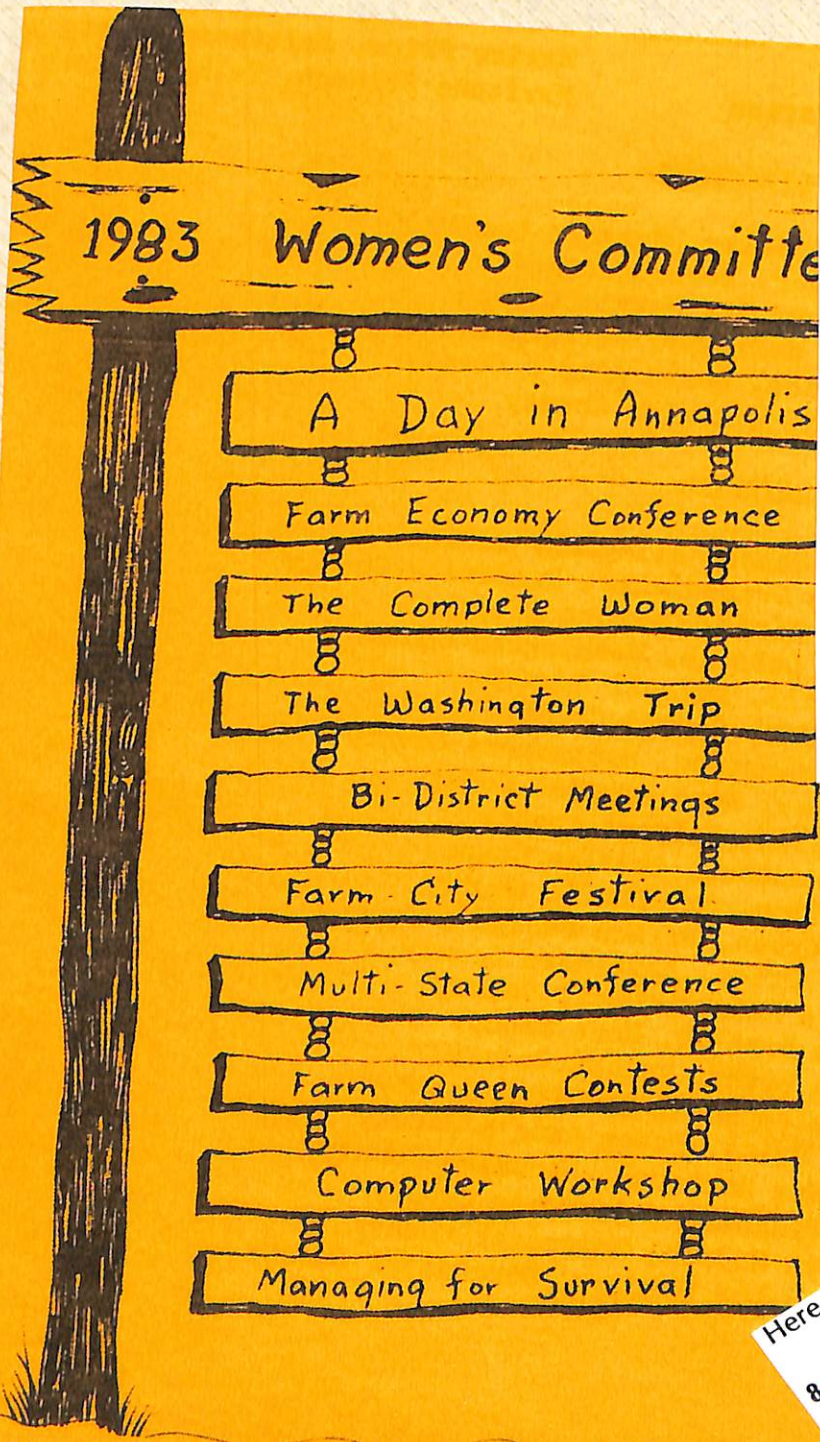 1983 Women's Committe
A Day in Annapolis
Farm Economy Conference
The Complete Woman
The Washington Trip
Bi-District Meetings
Farm-City Festival
Multi-State Conference
Farm Queen Contests
Computer Workshop
Managing for Survival
Here
8